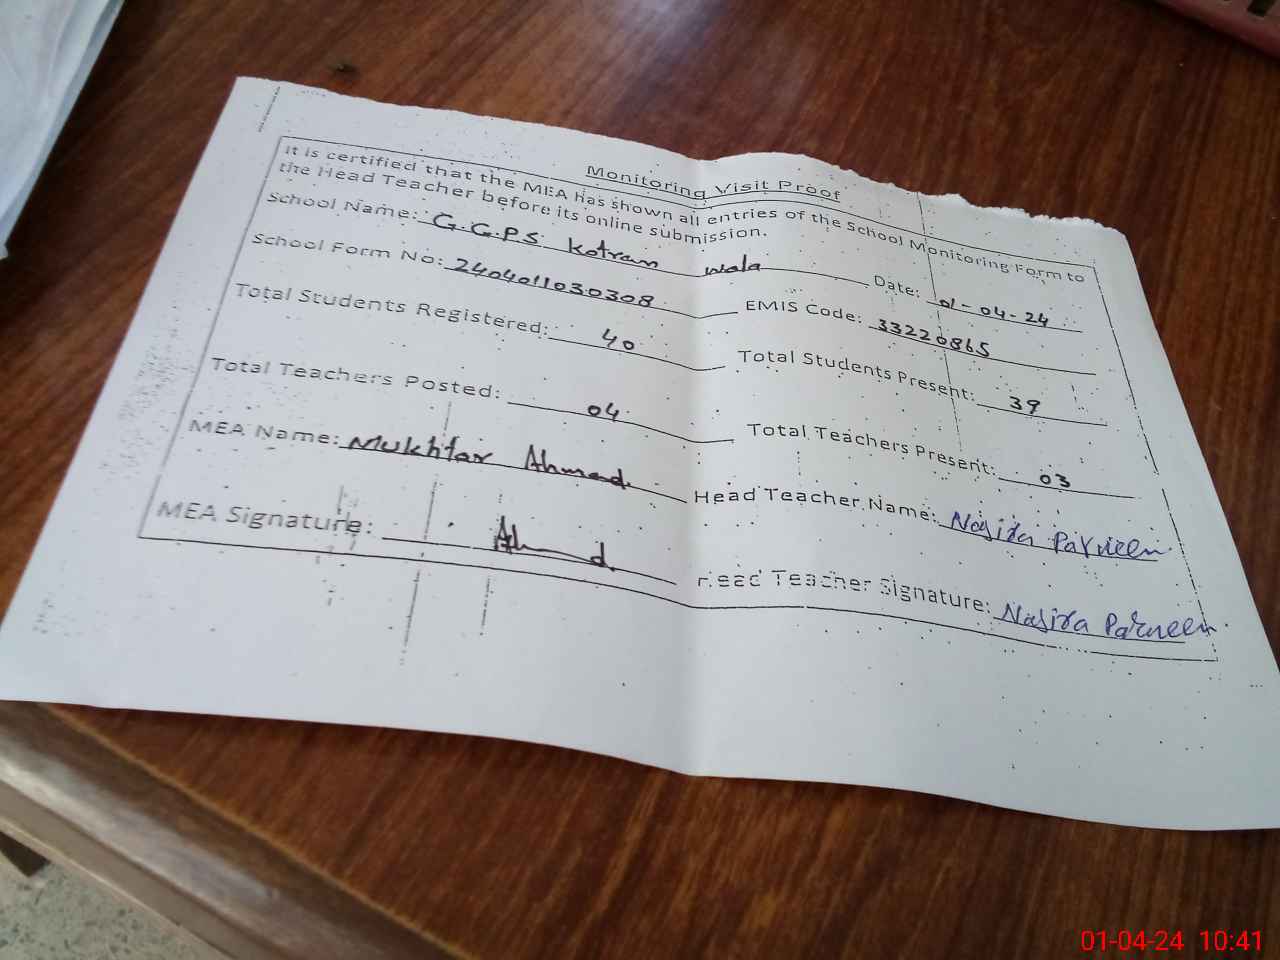 Monitoring Visit Proof
It is certified that the MEA has shown all entries of the School Monitoring Form to
the Head Teacher before its online submission.
School Name: G.G.P.S Kotran wala Date: 01-04-24
School Form No: 2404011030308 EMIS Code: 33220865
Total Students Registered: 40 Total Students Present: 39
Total Teachers Posted: 04 Total Teachers Present: 03
MEA Name: Mukhtar Ahmad. Head Teacher Name: Nasira Parveen
MEA Signature: Ahmad. Head Teacher Signature: Nasira Parveen
01-04-24 10:41